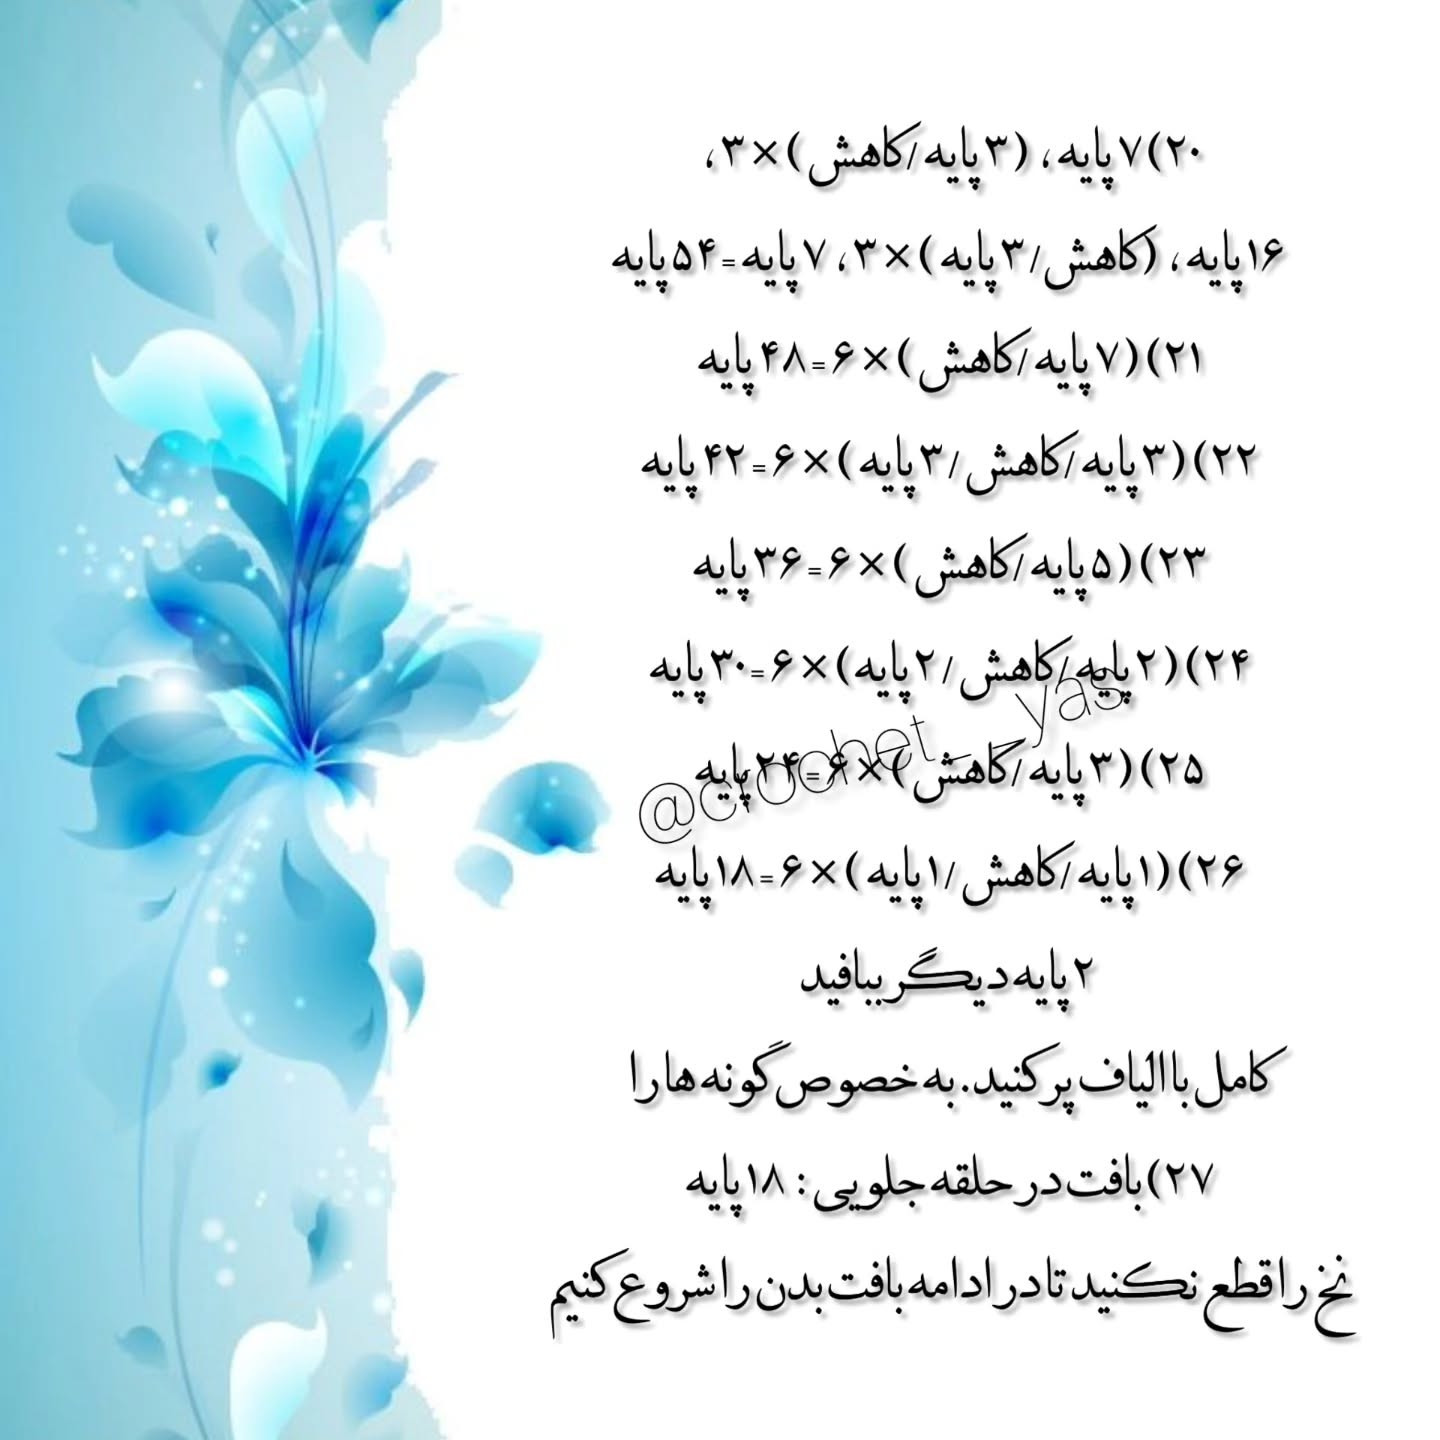 ۲۰)۷پایه، (۳پایه/کاهش)×۳،
۱۶پایه، (کاهش/۳پایه)×۳، ۷پایه=۵۴پایه
۲۱)(۷پایه/کاهش)×۶=۴۸پایه
۲۲)(۳پایه/کاهش/۳پایه)×۶=۴۲پایه
۲۳)(۵پایه/کاهش)×۶=۳۶پایه
۲۴)(۲پایه/کاهش/۲پایه)×۶=۳۰پایه
۲۵)(۳پایه/کاهش)×۶=۲۴پایه
@crochet__yas
۲۶)(۱پایه/کاهش/۱پایه)×۶=۱۸پایه
۲پایه دیگر ببافید
کامل با الیاف پر کنید. به خصوص گونه ها را
۲۷)بافت در حلقه جلویی: ۱۸پایه
نخ را قطع نکنید تا در ادامه بافت بدن را شروع کنیم